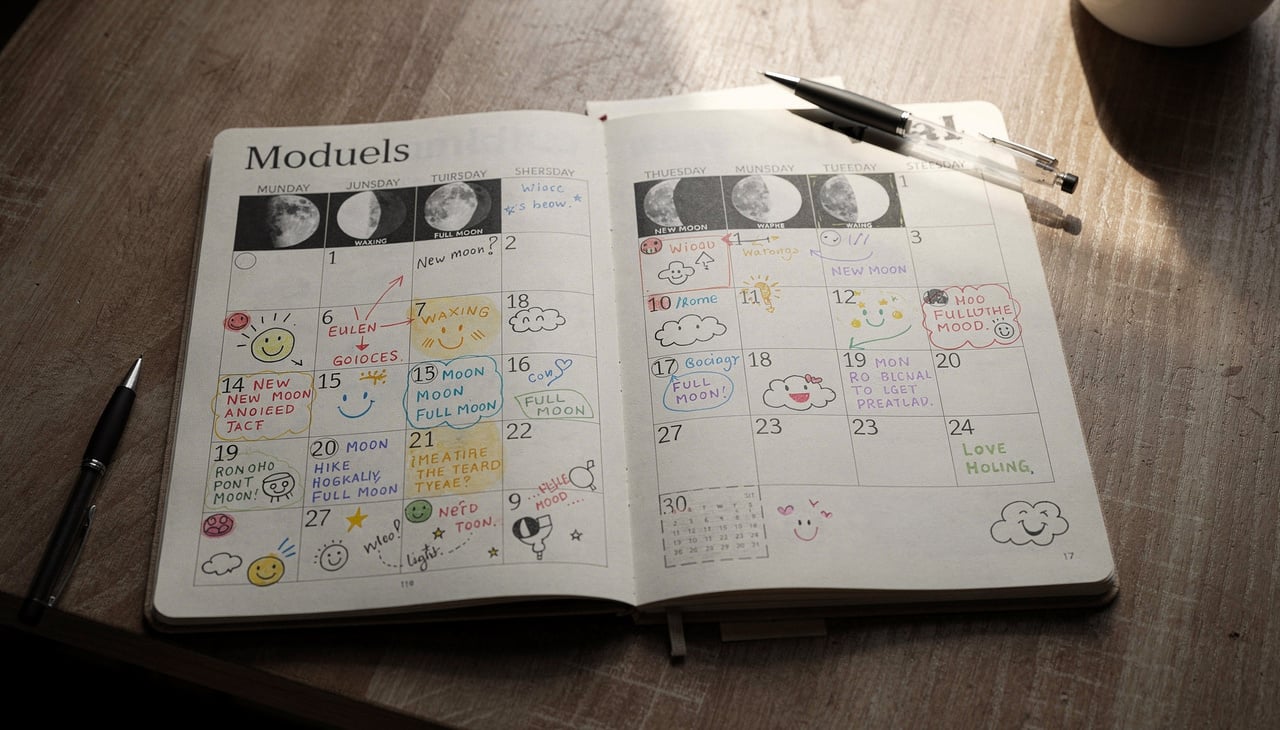 Moduels
MUNDAY
JUNSDAY
TUIRSDAY
SHERSDAY
WAXING
FULL MOON
's beow.
1
New moon?
2
6
EULEN
GOIOCES.
7
WAXING
18
14 NEW
NEW MOON
ANOICED
JACF
15
15 MOON
MOON
FULL MOON
16
con
FULL
MOON
19
RONOHO
PONT
MOON!
20 MOON
HIKE
HOGKALIY,
FULL MOON
21
MEATIRE
THE TEARD
TYEAE?
22
27
Light.
NERD
TOON.
9
MOOD...
110
al
THUESDAY
MUNSDAY
TUEEDAY
STEESDAY
NEW MOON
WAPHE
WAING
1
WIOAU
1
Warongs
NEW MOON
3
10 /Rome
11
12
HOO
FULLUTHE
MOOD.
17 Bociagy
FULL
MOON!
18
19 MON
RO BLCNAL
TO LGET
PREATLAD.
20
27
23
23
24
LOVE
HOLING.
30
17